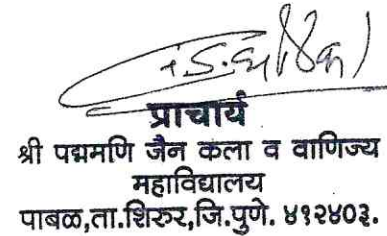 प्राचार्य
श्री पद्ममणि जैन कला व वाणिज्य
महाविद्यालय
पाबळ,ता.शिरुर,जि.पुणे. ४१२४०३.